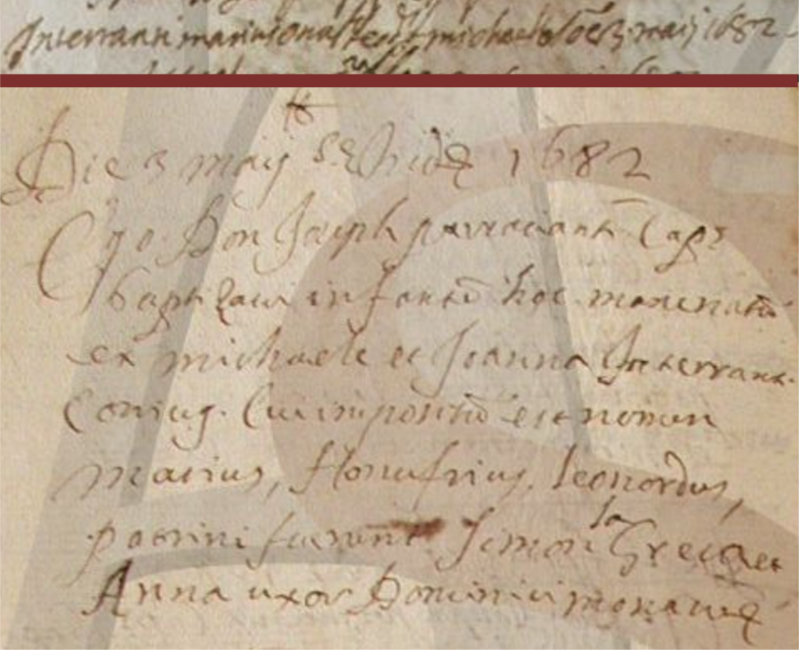 Interranti marius onufr michaele 3 maij 1682
Die 3 maij 1682
Ego Don Joseph parrocianũ Capp
baptizavi infantẽ hoc mane natũ
ex michaele et Joanna Interrant
coniug. Cui impositũ est nomen
marius, Honufrius, leonardus,
patrini fuerunt Simon la Greca et
Anna uxor Dominici monaco